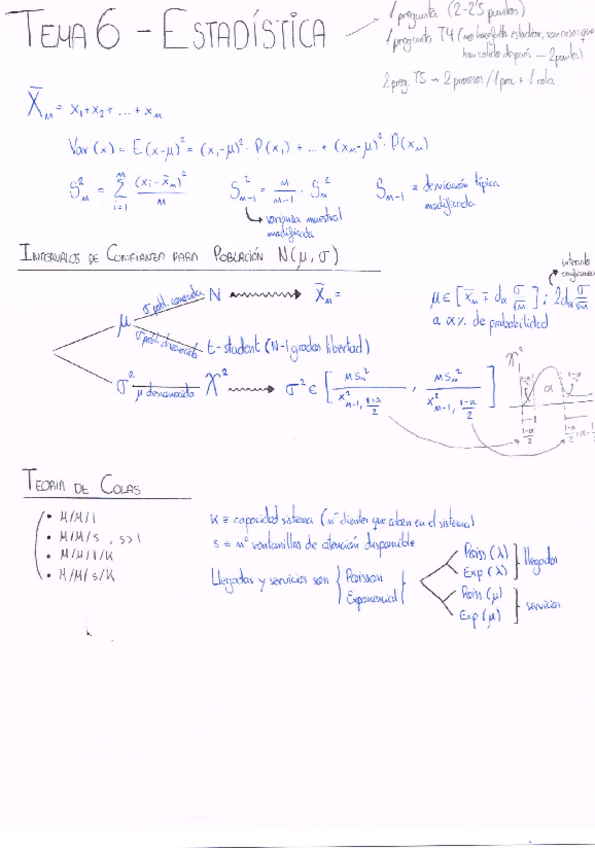 TEMA 6 - ESTADÍSTICA
1 pregunta (2-2'5 puntos)
1 pregunta T4 (no hace falta estadexe, son cosas que
han salido después — 2 puntos)
2 preg. T5 → 2 procesos / 1 proc + 1 cola
X̄ₘ = x₁+x₂+ ... + xₘ
Var(x) = E(x-μ)² = (x₁-μ)²· P(x₁) + ... + (xₘ-μ)²· P(xₘ)
S²ₘ = Σ (xᵢ-x̄ₘ)²/m S²ₘ₋₁ = m/(m-1) · S²ₘ Sₘ₋₁ ≡ desviación típica
modificada
varianza muestral
modificada
INTERVALOS DE CONFIANZA PARA POBLACIÓN N(μ, σ)
intervalo
σ pobl. conocida N X̄ₘ = μ ∈ [x̄ₘ ∓ dα σ/√m] ; 2dα σ/√m
a α% de probabilidad
μ
σ pobl. desconocida t-student (N-1 grados libertad)
σ² μ desconocida χ² σ² ∈ [ mSₘ²/χ²ₘ₋₁, (1+α)/2 , mSₘ²/χ²ₘ₋₁, (1-α)/2 ]
χ²
α
TEORÍA DE COLAS
• M/M/1
• M/M/s , s>1
• M/M/1/K
• M/M/s/K
K ≡ capacidad sistema (nº clientes que caben en el sistema)
s ≡ nº ventanillas de atención disponible
Llegadas y servicios son { Poisson
Exponencial }
Poiss (λ)
Exp (λ) } llegadas
Poiss (μ)
Exp (μ) } servicios